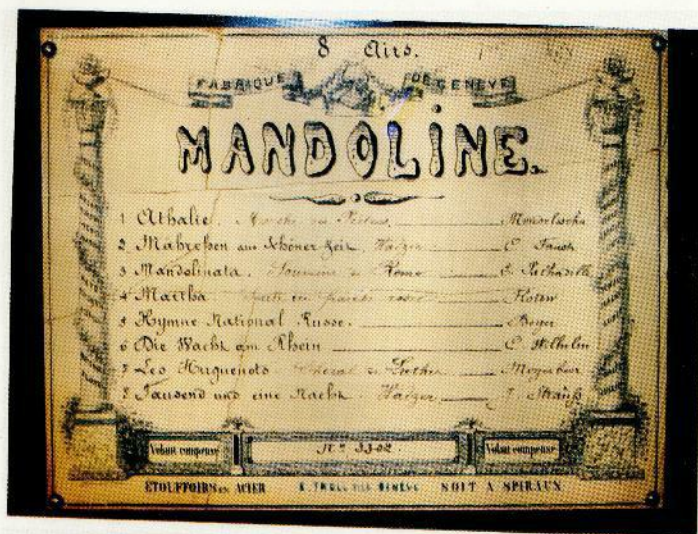 8 Airs.
FABRIQUE DE GENÈVE
MANDOLINE.
1 Athalie. Marche des Prêtres Mendelssohn
2 Mährchen aus schöner Zeit. Walzer E. Faust
3 Mandolinata. Souvenir de Rome E. Palhadille
4 Martha. Flotow
5 Hymne National Russe. Beyer
6 Die Wacht am Rhein C. Wilhelm
7 Les Huguenots Choral de Luther Meyerbeer
8 Tausend und eine Nacht. Walzer J. Strauß
Volant compensé Nº 3302. Volant compensé
ÉTOUFFOIRS EN ACIER GENÈVE SOIT A SPIRAUX